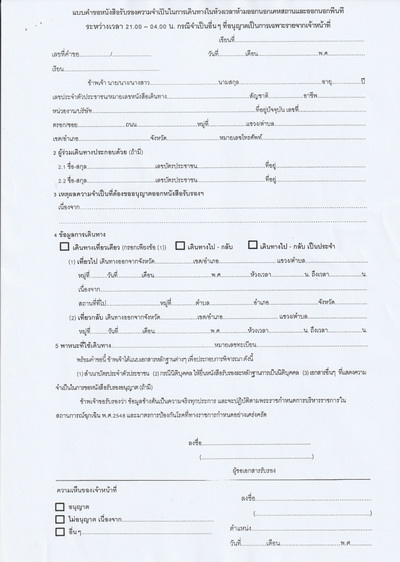 แบบคำขอหนังสือรับรองความจำเป็นในการเดินทางในห้วงเวลาห้ามออกนอกเคหสถานและออกนอกพื้นที่
ระหว่างเวลา 21.00 – 04.00 น. กรณีจำเป็นอื่นๆ ที่อนุญาตเป็นการเฉพาะรายจากเจ้าหน้าที่
เขียนที่
เลขที่คำขอ / วันที่ เดือน พ.ศ.
เรียน
ข้าพเจ้า นาย/นาง/นางสาว นามสกุล อายุ ปี
เลขประจำตัวประชาชน/หมายเลขหนังสือเดินทาง สัญชาติ อาชีพ
หน่วยงาน/บริษัท ที่อยู่ปัจจุบัน เลขที่
ตรอก/ซอย ถนน หมู่ที่ แขวง/ตำบล
เขต/อำเภอ จังหวัด หมายเลขโทรศัพท์
2 ผู้ร่วมเดินทางประกอบด้วย (ถ้ามี)
2.1 ชื่อ-สกุล เลขบัตรประชาชน ที่อยู่
2.2 ชื่อ-สกุล เลขบัตรประชาชน ที่อยู่
3 เหตุผลความจำเป็นที่ต้องขออนุญาตออกหนังสือรับรองฯ
เนื่องจาก
4 ข้อมูลการเดินทาง
เดินทางเที่ยวเดียว (กรอกเพียงข้อ (1)) เดินทางไป - กลับ เดินทางไป - กลับ เป็นประจำ
(1) เที่ยวไป เดินทางออกจากจังหวัด เขต/อำเภอ แขวง/ตำบล
หมู่ที่ วันที่ เดือน พ.ศ ห้วงเวลา น. ถึงเวลา น.
เนื่องจาก
สถานที่ที่ไป หมู่ที่ ตำบล อำเภอ จังหวัด
(2) เที่ยวกลับ เดินทางออกจากจังหวัด เขต/อำเภอ แขวง/ตำบล
หมู่ที่ วันที่ เดือน พ.ศ ห้วงเวลา น. ถึงเวลา น.
5 พาหนะที่ใช้เดินทาง หมายเลขทะเบียน
พร้อมคำขอนี้ ข้าพเจ้าได้แนบเอกสารหลักฐานต่างๆ เพื่อประกอบการพิจารณา ดังนี้
(1) สำเนาบัตรประจำตัวประชาชน (2) กรณีนิติบุคคล ให้ยื่นหนังสือรับรองและหลักฐานการเป็นนิติบุคคล (3) เอกสารอื่นๆ ที่แสดงความ
จำเป็นในการขอหนังสือรับรองอนุญาต (ถ้ามี)
ข้าพเจ้าขอรับรองว่า ข้อมูลข้างต้นเป็นความจริงทุกประการ และจะปฏิบัติตามพระราชกำหนดการบริหารราชการใน
สถานการณ์ฉุกเฉิน พ.ศ.2548 และมาตรการป้องกันโรคที่ทางราชการกำหนดอย่างเคร่งครัด
ลงชื่อ
( )
ผู้ขอเอกสารรับรอง
ความเห็นของเจ้าหน้าที่
ลงชื่อ
อนุญาต
( )
ไม่อนุญาต เนื่องจาก
ตำแหน่ง
อื่นๆ
วันที่ เดือน พ.ศ.